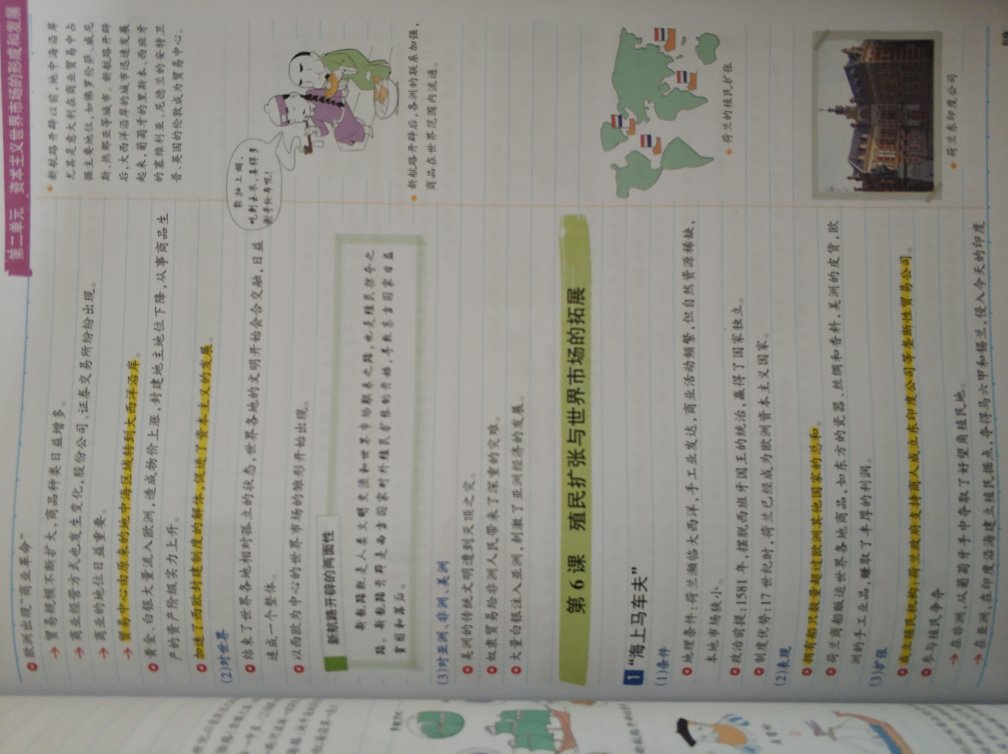 第二单元 资本主义世界市场的形成和发展
欧洲出现“商业革命”
贸易规模不断扩大，商品种类日益增多。
商业经营方式也发生变化，股份公司、证券交易所纷纷出现。
商业的地位日益重要。
贸易中心由原来的地中海区域转到大西洋沿岸。
黄金、白银大量流入欧洲，造成物价上涨，封建地主地位下降，从事商品生
产的资产阶级实力上升。
加速了西欧封建制度的解体，促进了资本主义的发展。
(2)对世界
结束了世界各地相对孤立的状态，世界各地的文明开始会合交融，日益
连成一个整体。
以西欧为中心的世界市场的雏形开始出现。
新航路开辟的两面性
新航路既是人类文明交流和世界市场联系之路，也是殖民掠夺之
路。新航路开辟是西方国家对外殖民扩张的开端，导致东方国家日益
贫困和落后。
(3)对亚洲、非洲、美洲
美洲的传统文明遭到灭顶之灾。
奴隶贸易给非洲人民带来了深重的灾难。
大量白银注入亚洲，刺激了亚洲经济的发展。
第6课 殖民扩张与世界市场的拓展
1 “海上马车夫”
(1)条件
地理条件：荷兰濒临大西洋，手工业发达，商业活动频繁，但自然资源稀缺，
本地市场狭小。
政治前提：1581年，摆脱西班牙国王的统治，赢得了国家独立。
制度优势：17世纪时，荷兰已经成为欧洲资本主义国家。
(2)表现
拥有船只数量超过欧洲其他国家的总和。
荷兰商船贩运世界各地商品，如东方的瓷器、丝绸和香料，美洲的皮货，欧
洲的手工业品，赚取了丰厚的利润。
(3)扩张
成立殖民机构：荷兰政府支持商人成立东印度公司等垄断性贸易公司。
参与殖民争夺
在非洲，从葡萄牙手中夺取了好望角殖民地。
在亚洲，在印度沿海建立殖民据点，夺得马六甲和锡兰，侵入今天的印度
新航路开辟以前，地中海沿岸
尤其是意大利在商业贸易中占
据主要地位，如佛罗伦萨、威尼
斯、热那亚等城市。新航路开辟
后，大西洋沿岸的城市迅速发展
起来，葡萄牙的里斯本、西班牙
的塞维利亚、尼德兰的安特卫
普、英国的伦敦成为贸易中心。
新航路开辟后，各洲的联系加强，
商品在世界范围内流通。
荷兰的殖民扩张
荷兰东印度公司